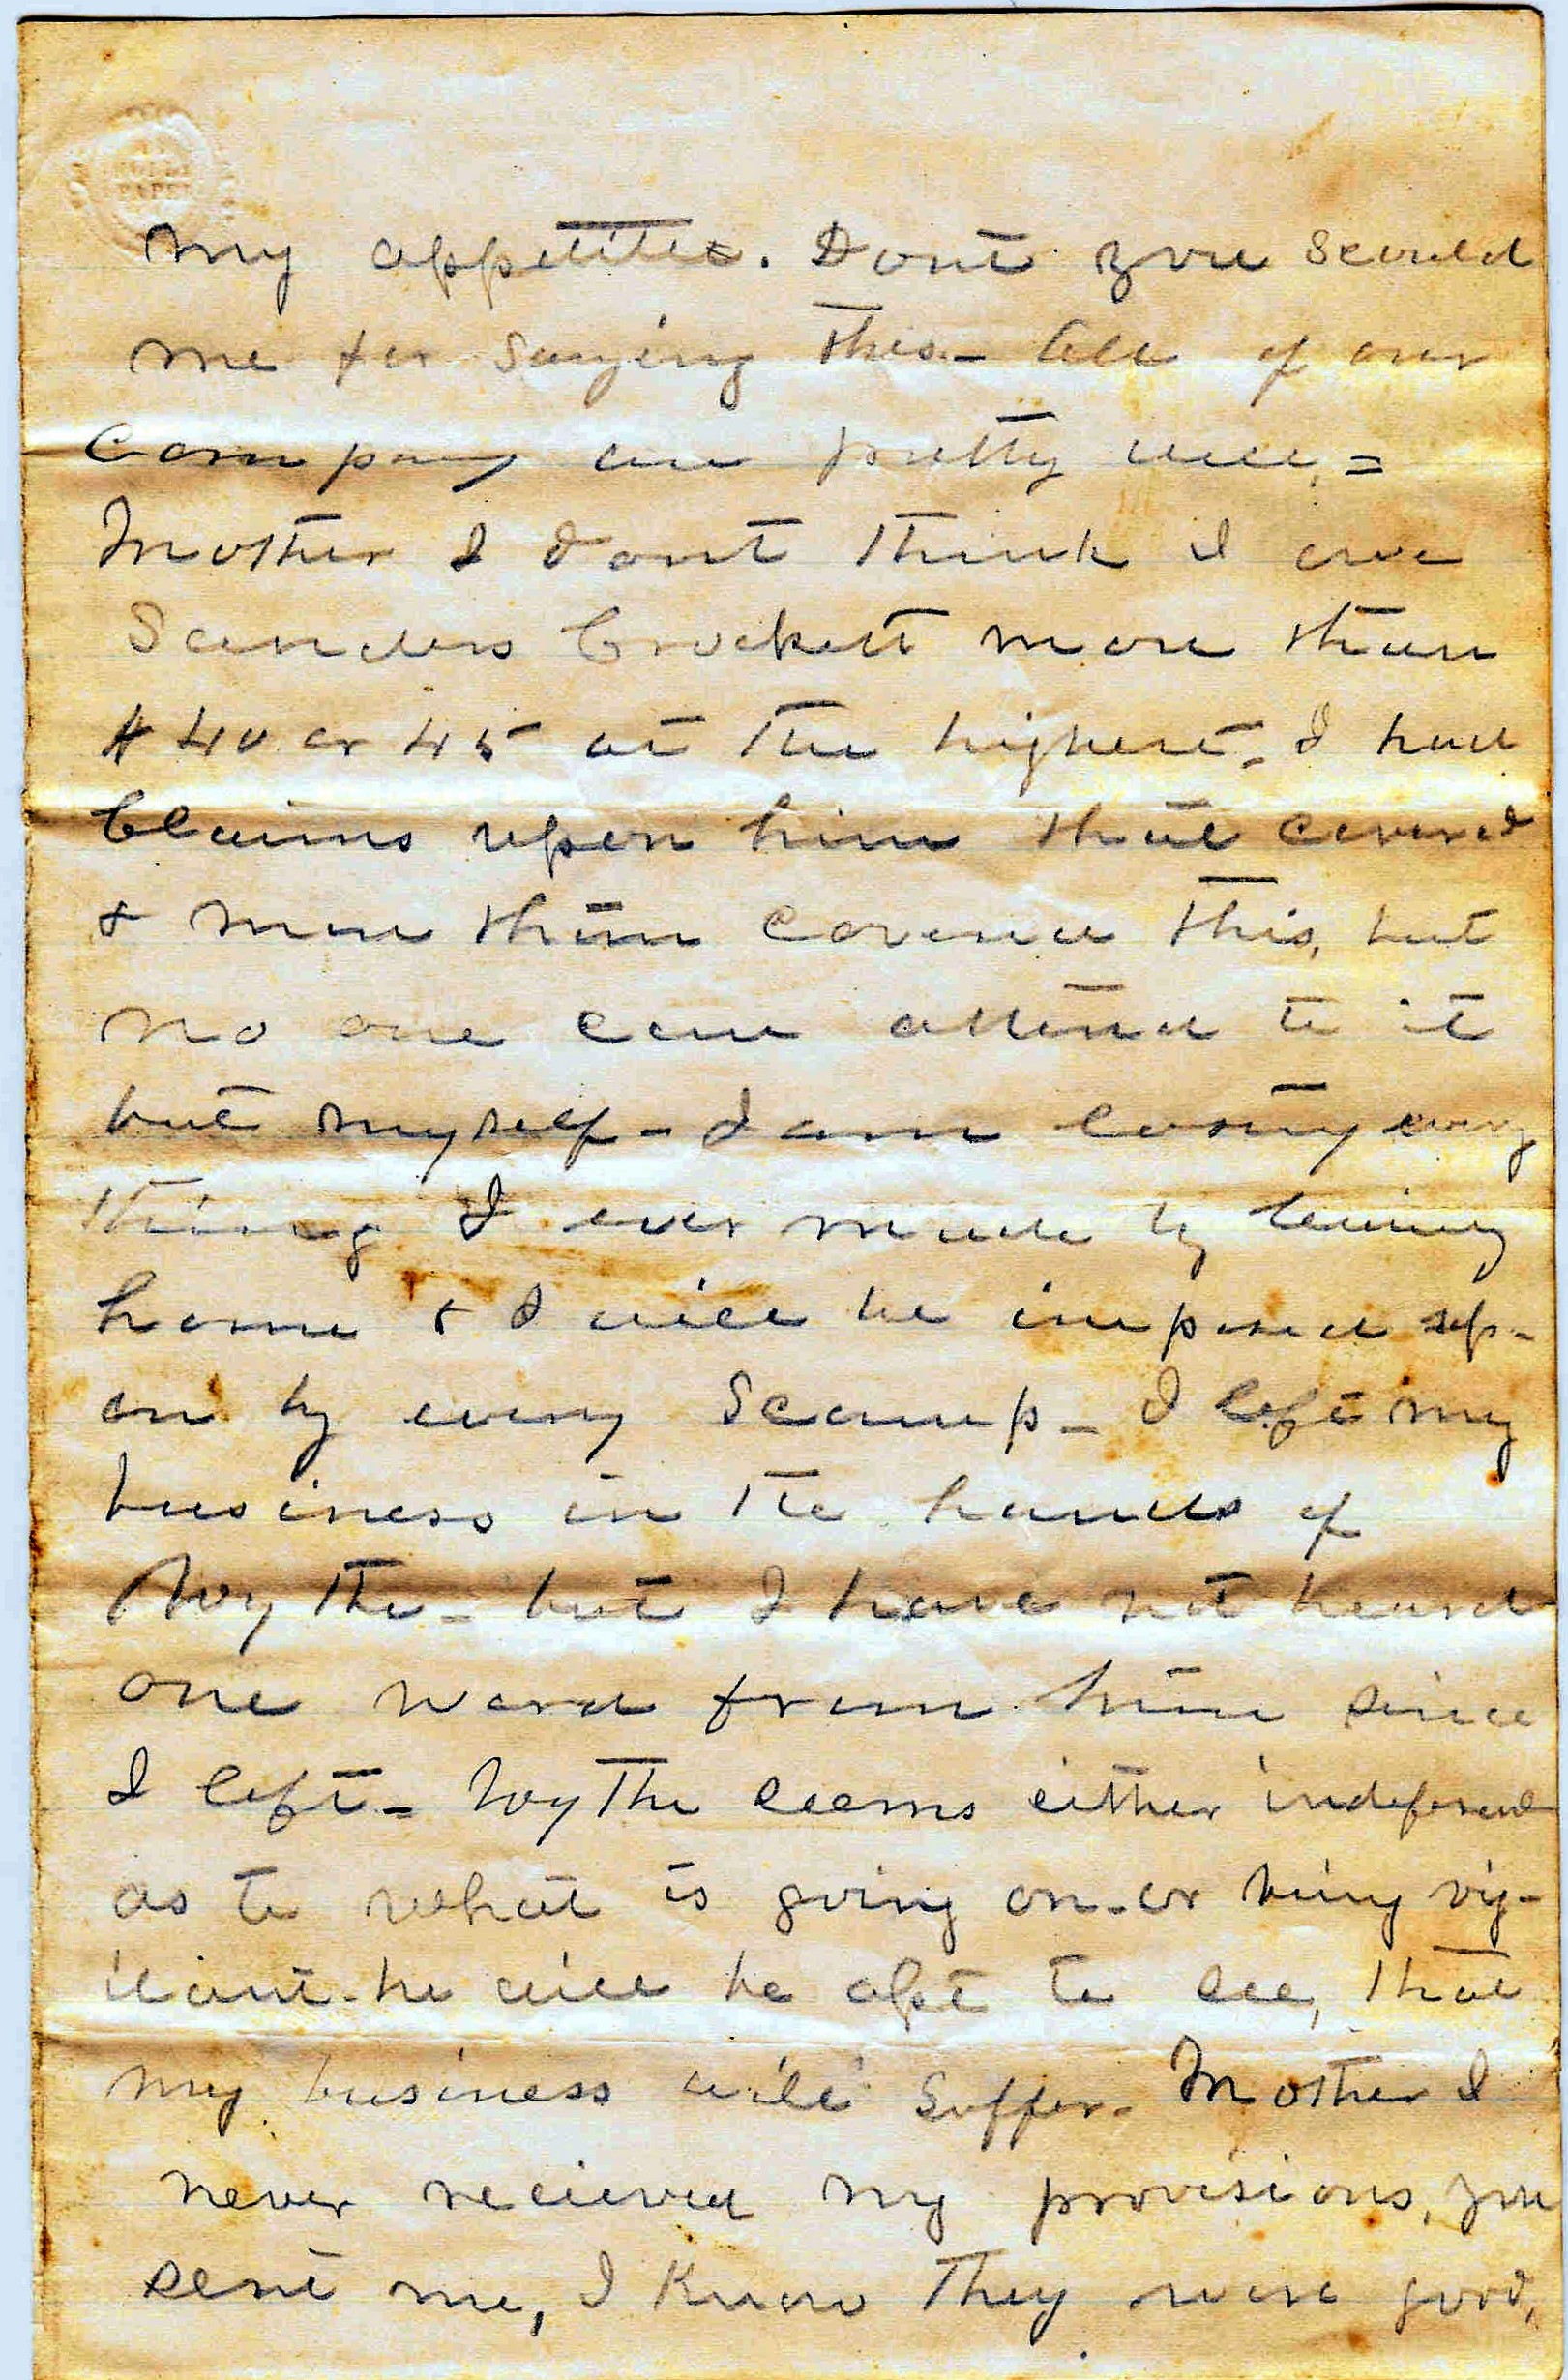 PAPER
my appetites. Dont you scould
me for saying this - All of our
Company are pretty well, =
Mother I dont think I owe
Sanders Crockett more than
$40 or 45 at the highest, I had
Claims upon him that covered
& more than covered this, but
no one can attend to it
but myself - I am loosing every
thing I ever made by leaving
home & I will be imposed up-
on by every Scamp - I left my
business in the hands of
Wythe - but I have not heard
one word from him since
I left = Wythe seems either
as to what is going on - or being vig-
ilant - he will be apt to see, that
my business will suffer - Mother I
never recieved my provisions, you
sent me, I Know They were good,